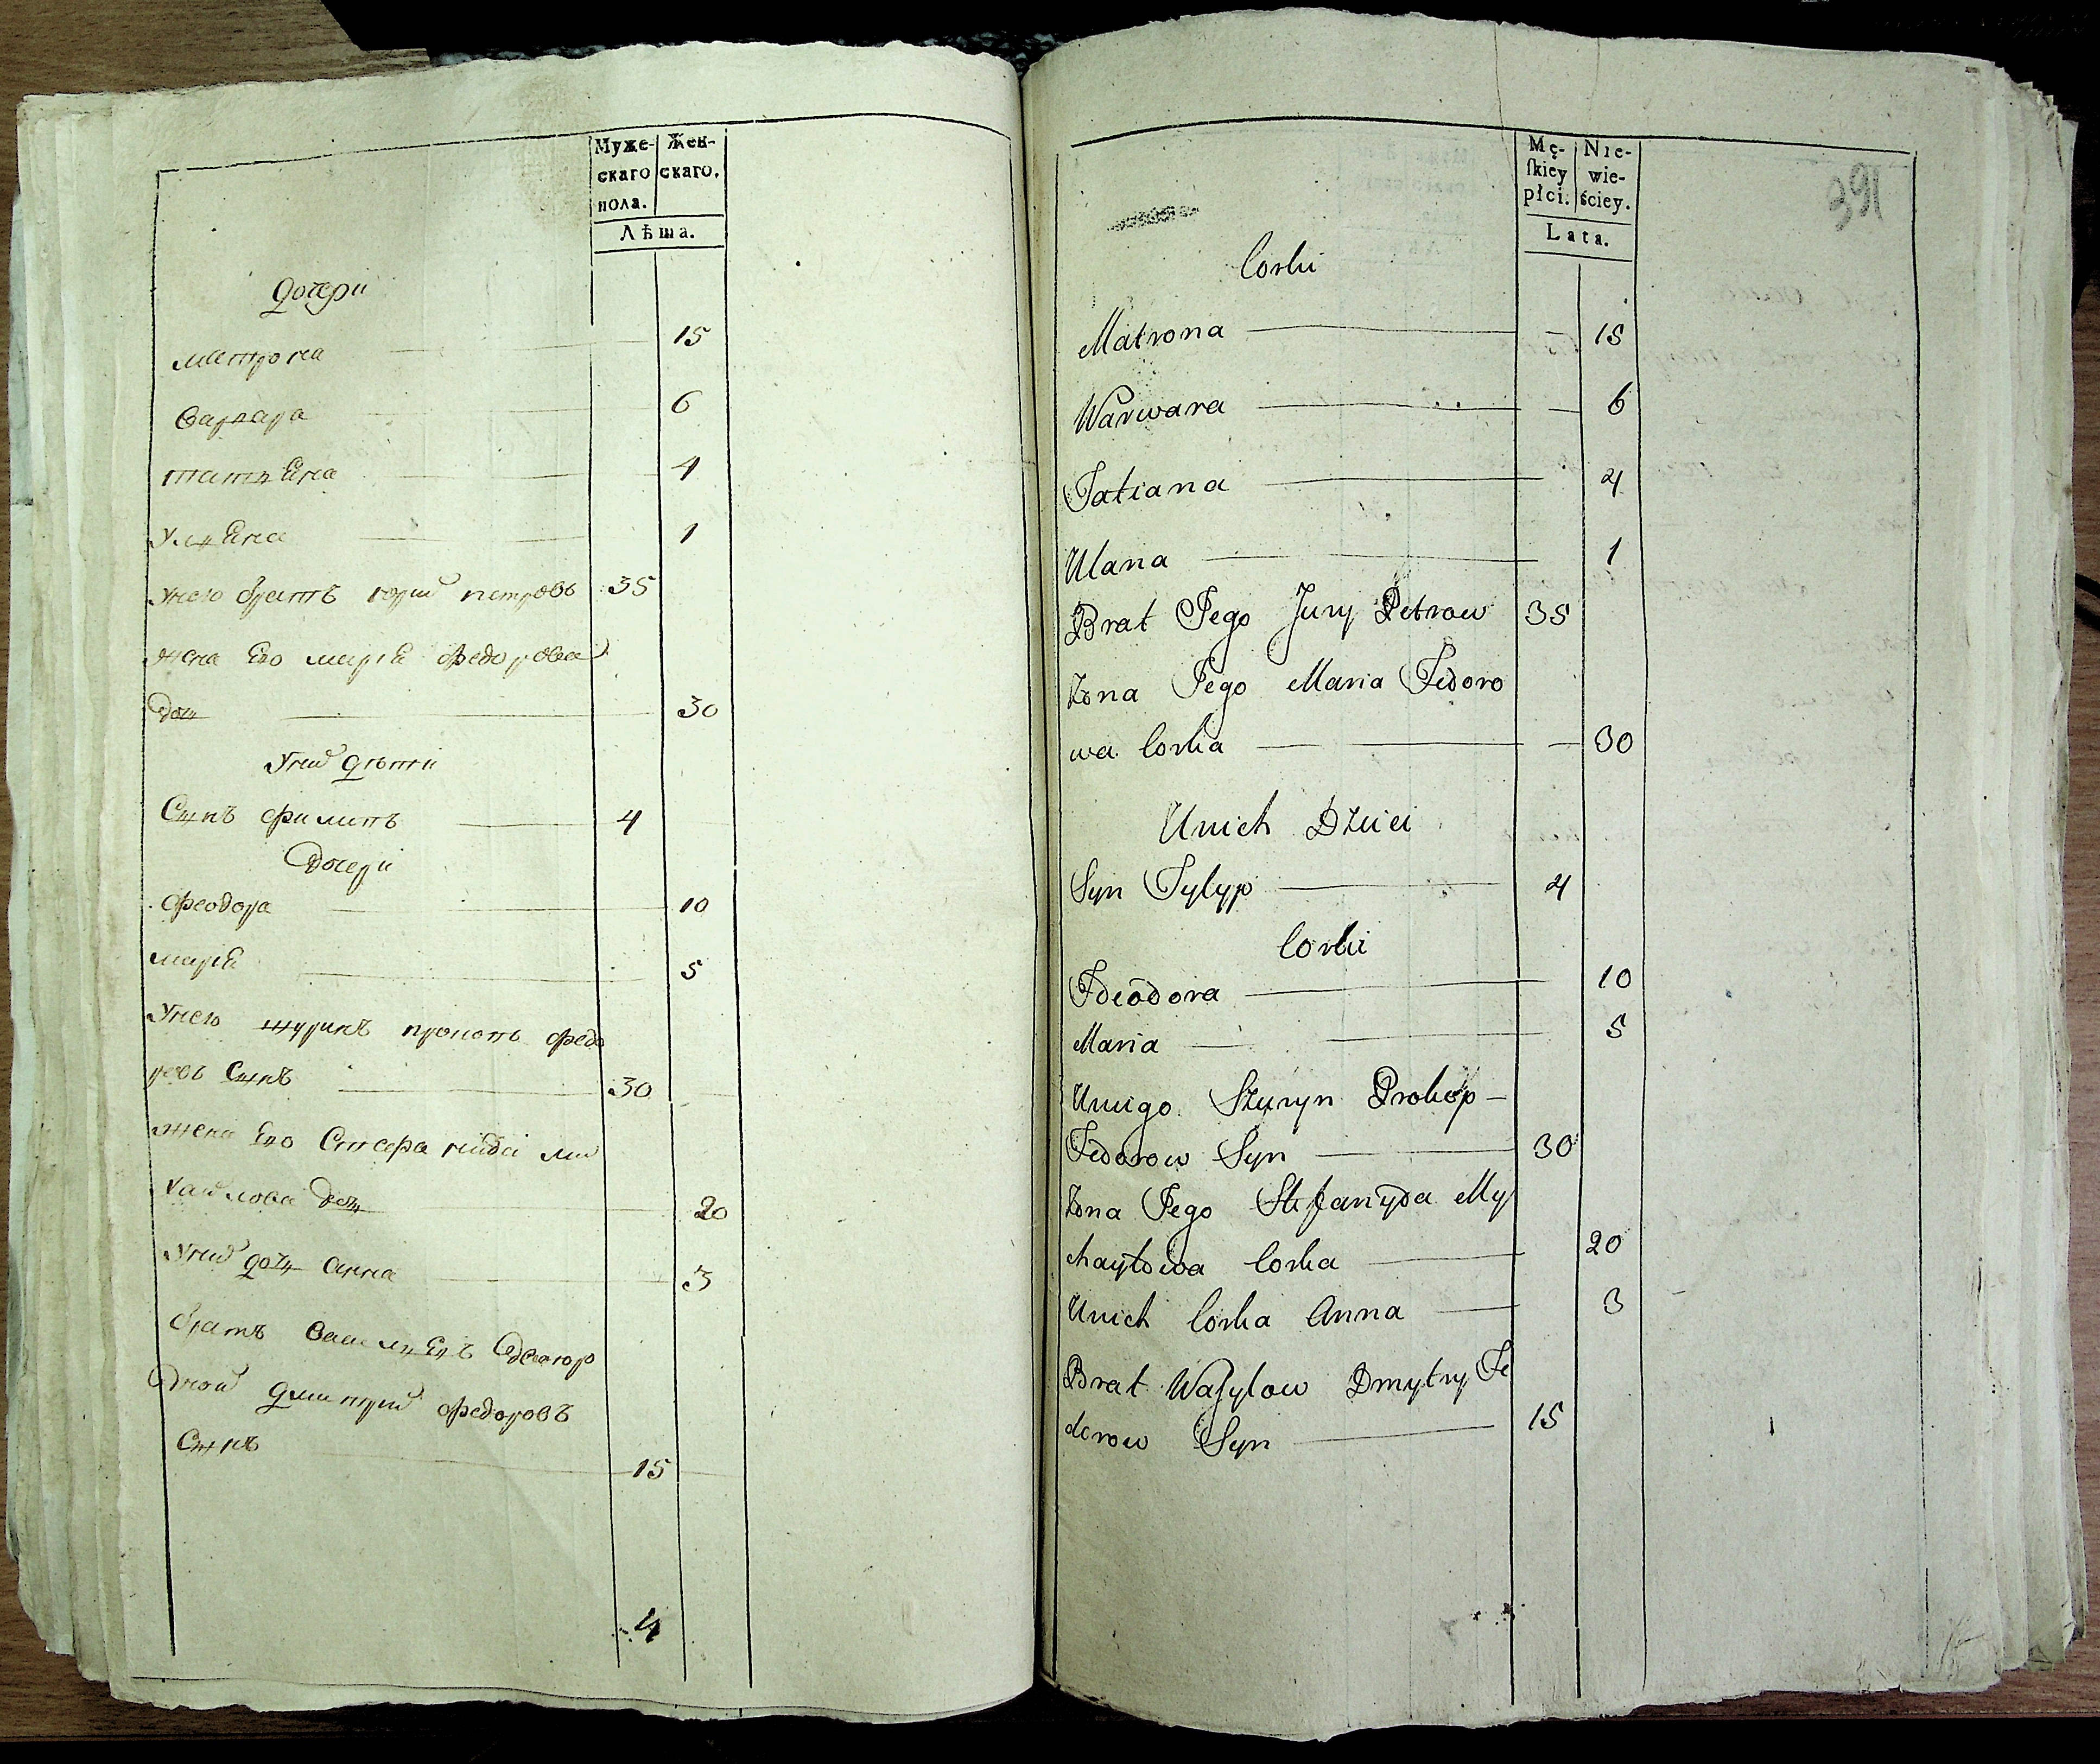 Муже-
скаго
пола.
Жен-
скаго.
Лѣта.
дочери
матрона 15
варвара 6
татъяна 4
улъяна 1
унего братъ юрий петровъ 35
жена Его маръя федорова
дочь 30
уних дѣти
Сынъ филипъ 4
Дочери
феодора 10
маръя 5
унего шуринъ прокопъ федо
ровъ Сынъ 30
жена Его Стефанида ми
хайлова дочь 20
уних дочь анна 3
братъ васильевъ двоюро
дной дмитрий федоровъ
Сынъ 15
4
Mę-
ſkiey
płci.
Nie-
wie-
ściey.
Lata.
391
Corki
Matrona 15
Warwara 6
Tatiana 4
Ulana 1
Brat Jego Jury Petrow 35
Żona Jego Maria Fedoro
wa Corka 30
Unich Dzieci
Syn Fylyp 4
Corki
Fdeodora 10
Maria 5
Uniego Szuryn Prokop
Fedorow Syn 30
Żona Jego Stefanyda My
chayłowa Corka 20
Unich Corka Anna 3
Brat Waſylow Dmytry Fe
dorow Syn 15